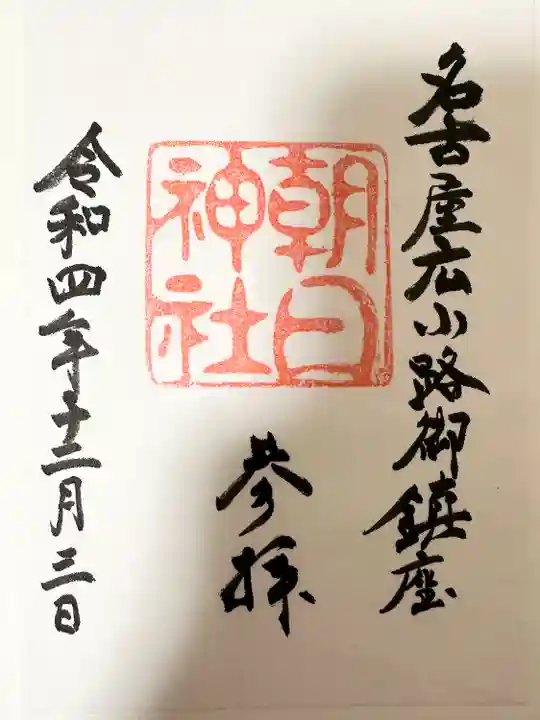 名古屋広小路御鎮座
朝日
神社
参拝
令和四年十二月三日